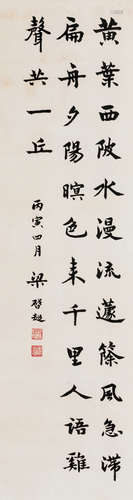 黃葉西陂水漫流籧風急滯
扁舟夕陽暝色来千里人語雞
聲共一丘
丙寅四月 梁啓超